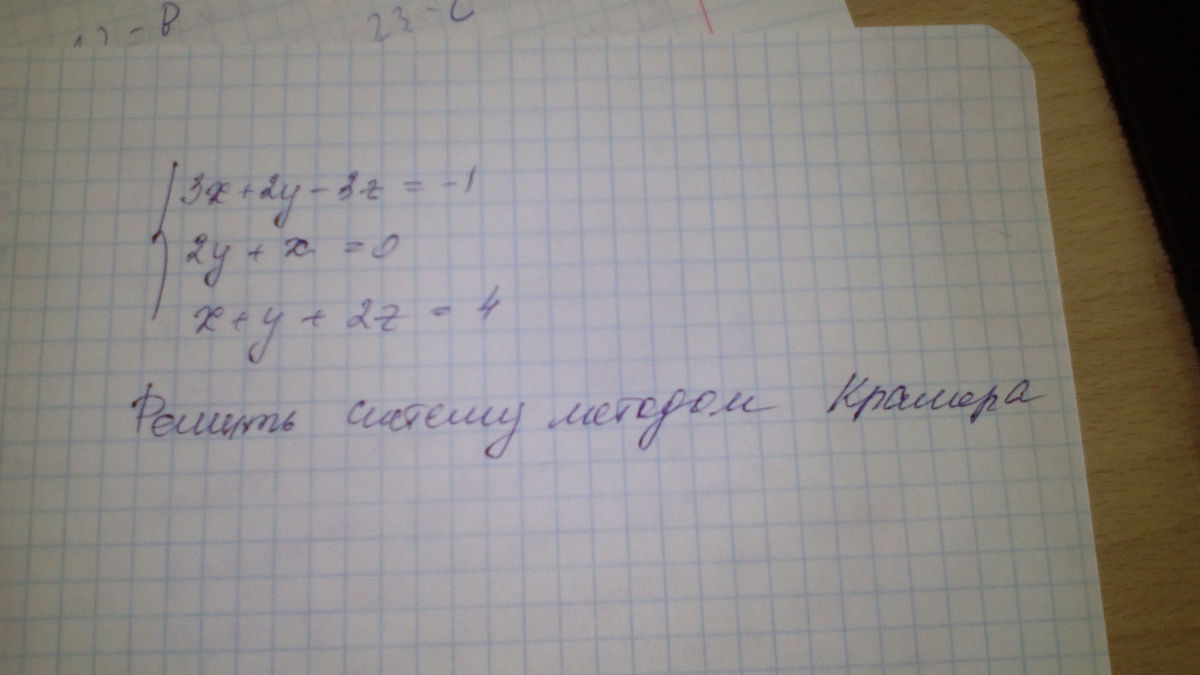 23 - C
3x + 2y - 3z = -1
2y + x = 0
x + y + 2z = 4
Решить систему методом Крамера